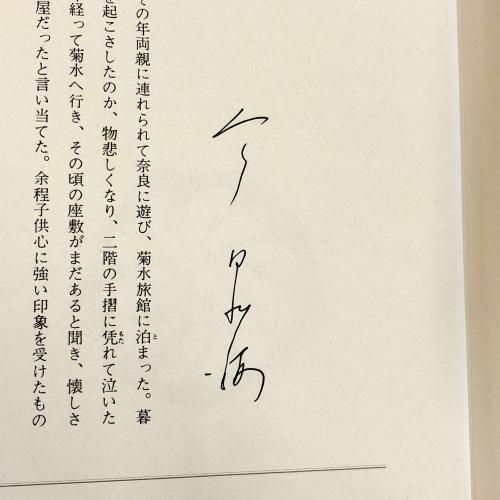 今日出海
その年両親に連れられて奈良に遊び、菊水旅館に泊まった。暮
を起こさしたのか、物悲しくなり、二階の手摺に凭れて泣いた
経って菊水へ行き、その頃の座敷がまだあると聞き、懐しさ
屋だったと言い当てた。余程子供心に強い印象を受けたもの